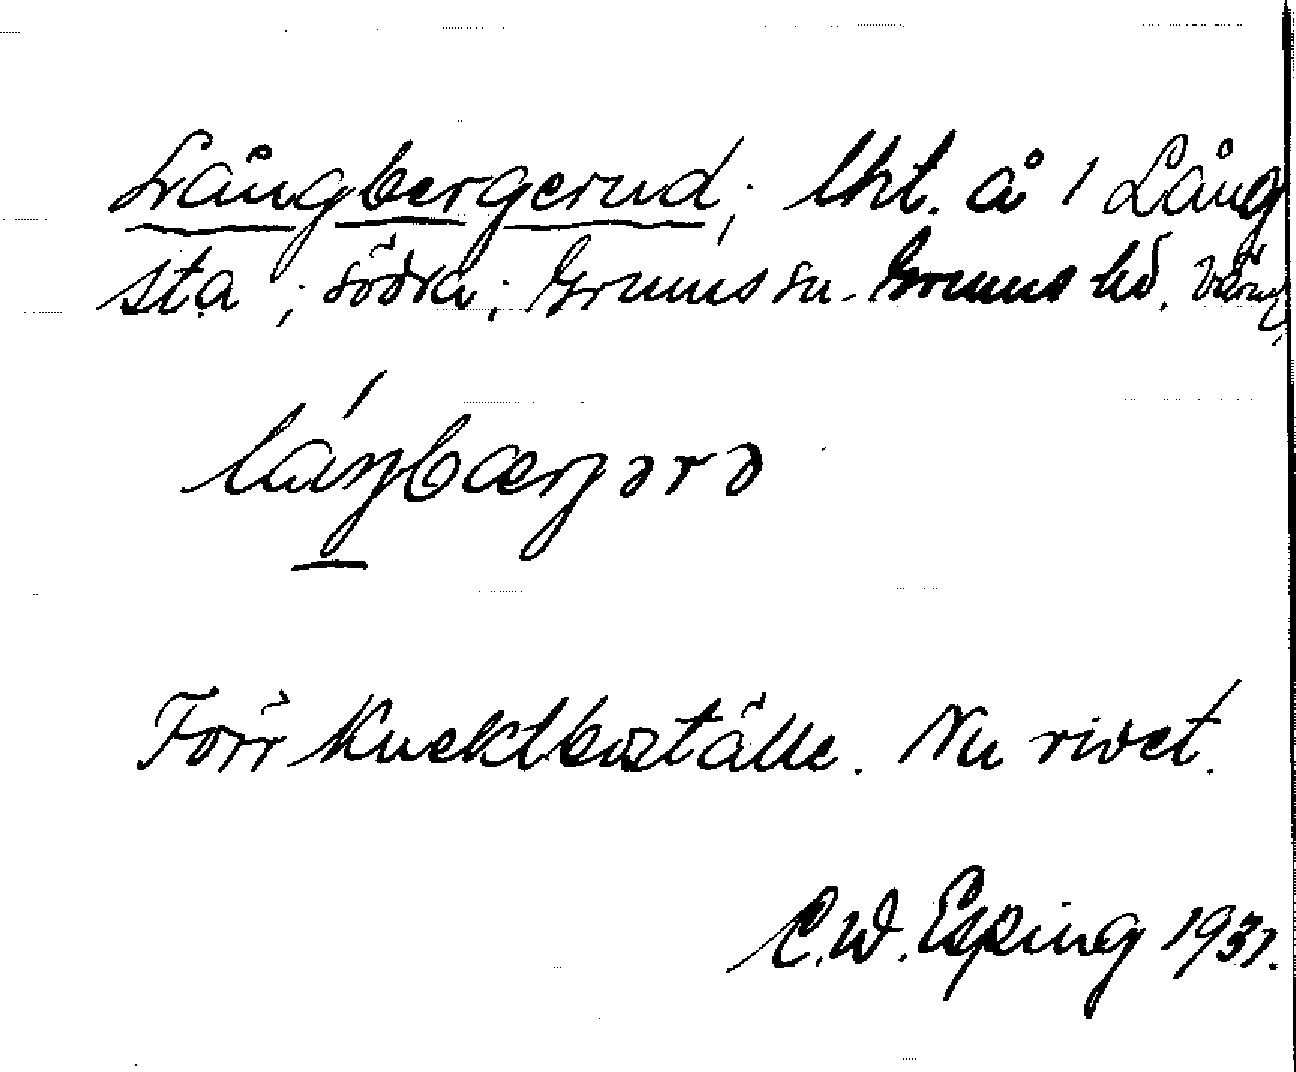 Långbergerud; lht. å 1 Lång
sta; södra; Grums sn. Grums hd. Värml.
låŋbærjərə
Förr knektboställe. Nu rivet.
C.W. Esping 1931.